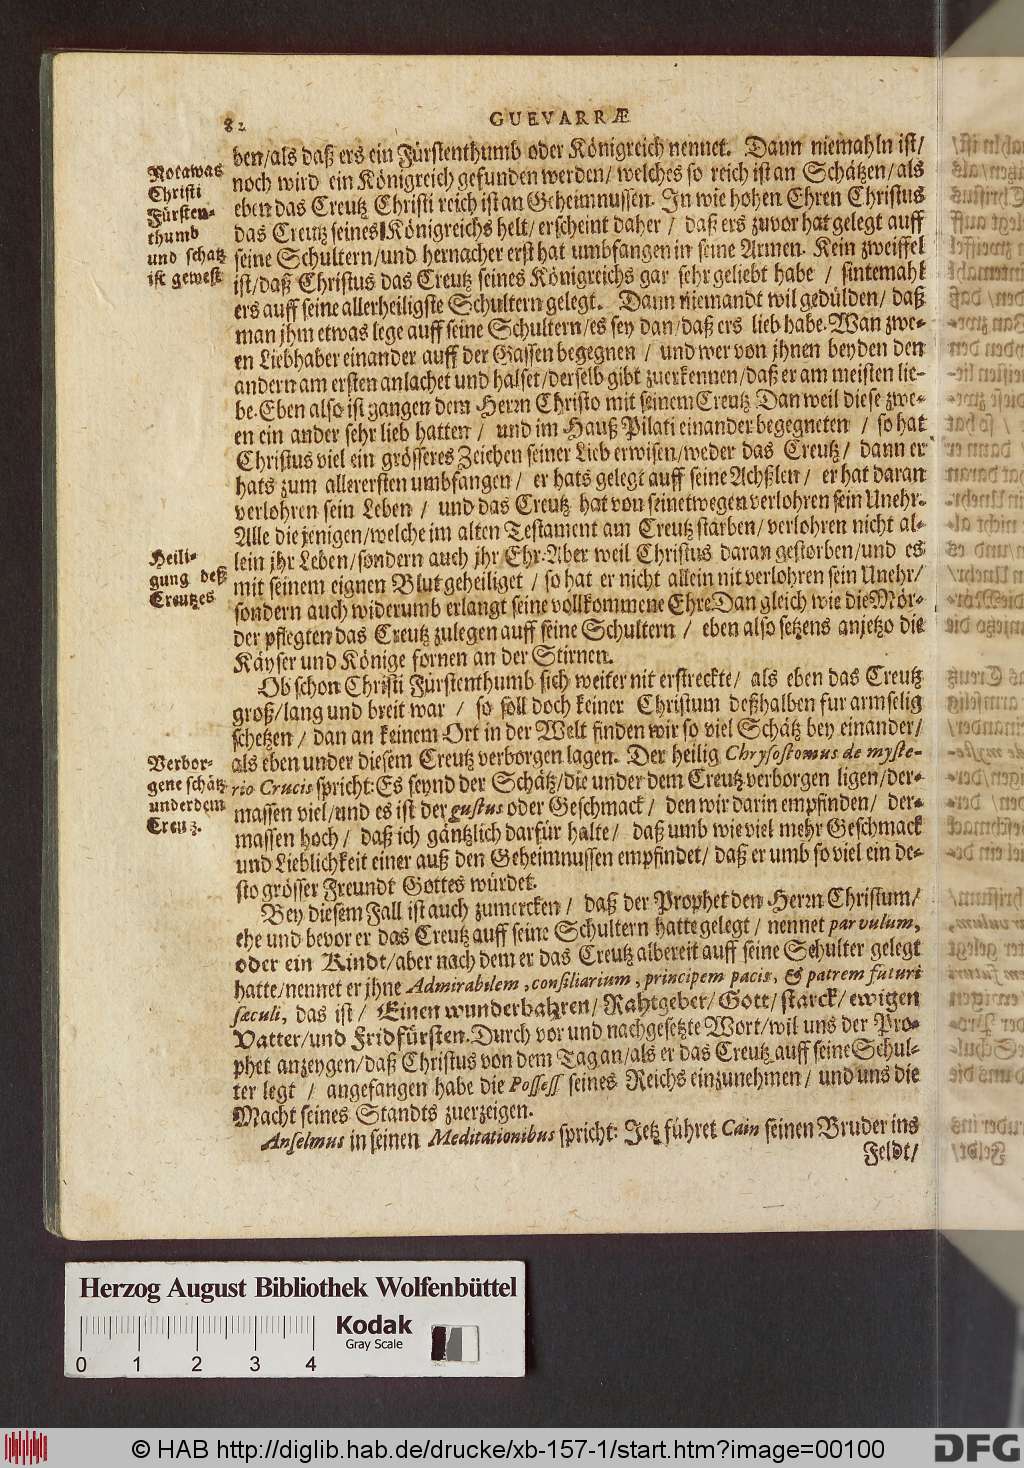 82
GUEVARRÆ
ben/als daß ers ein Fürstenthumb oder Königreich nennet. Dann niemahln ist/
noch wird ein Königreich gefunden werden/ welches so reich ist an Schätzen/als
eben das Creutz Christi reich ist an Geheimnussen. In wie hohen Ehren Christus
das Creutz seines Königreichs helt/ erscheint daher / daß ers zuvor hat gelegt auff
seine Schultern/und hernacher erst hat umbfangen in seine Armen. Kein zweiffel
ist/daß Christus das Creutz seines Königreichs gar sehr geliebt habe / sintemahl
ers auff seine allerheiligste Schultern gelegt. Dann niemandt wil gedülden/ daß
man jhm etwas lege auff seine Schultern/es sey dan/daß ers lieb habe. Wan zwe-
en Liebhaber einander auff der Gassen begegnen / und wer von jhnen beyden den
andern am ersten anlachet und halset/derselb gibt zuerkennen/daß er am meisten lie-
be. Eben also ist gangen dem Herrn Christo mit seinem Creutz Dan weil diese zwe-
en ein ander sehr lieb hatten / und im Hauß Pilati einander begegneten / so hat
Christus viel ein grösseres Zeichen seiner Lieb erwisen/weder das Creutz/ dann er
hats zum allerersten umbfangen/ er hats gelegt auff seine Achßlen/ er hat daran
verlohren sein Leben / und das Creutz hat von seinetwegen verlohren sein Unehr.
Alle die jenigen/welche im alten Testament am Creutz starben/ verlohren nicht al-
lein jhr Leben/sondern auch jhr Ehr. Aber weil Christus daran gestorben/und es
mit seinem eignen Blut geheiliget / so hat er nicht allein nit verlohren sein Unehr/
sondern auch widerumb erlangt seine vollkommene Ehre Dan gleich wie die Mör-
der pflegten das Creutz zulegen auff seine Schultern / eben also setzens anjetzo die
Käyser und Könige fornen an der Stirnen.
Ob schon Christi Fürstenthumb sich weiter nit erstreckte/ als eben das Creutz
groß/lang und breit war / so soll doch keiner Christum deßhalben fur armselig
schetzen / dan an keinem Ort in der Welt finden wir so viel Schätz bey einander/
als eben under diesem Creutz verborgen lagen. Der heilig Chrysostomus de myste-
rio Crucis spricht: Es seynd der Schätz/die under dem Creutz verborgen ligen/der-
massen viel/und es ist der gustus oder Geschmack / den wir darin empfinden/ der-
massen hoch/ daß ich gäntzlich darfür halte/ daß umb wie viel mehr Geschmack
und Lieblichkeit einer auß den Geheimnussen empfindet/ daß er umb so viel ein de-
sto grösser Freundt Gottes würdet.
Bey diesem Fall ist auch zumercken / daß der Prophet den Herrn Christum/
ehe und bevor er das Creutz auff seine Schultern hatte gelegt / nennet parvulum,
oder ein Kindt/aber nach dem er das Creutz albereit auff seine Schulter gelegt
hatte/nennet er jhne Admirabilem, consiliarium, principem pacis, & patrem futuri
sæculi, das ist/ Einen wunderbahren/ Rahtgeber/ Gott/ starck/ ewigen
Vatter/und Fridfürsten. Durch vor und nachgesetzte Wort/wil uns der Pro-
phet anzeygen/daß Christus von dem Tag an/als er das Creutz auff seine Schul-
ter legt / angefangen habe die Possess seines Reichs einzunehmen/ und uns die
Macht seines Standts zuerzeigen.
Anselmus in seinen Meditationibus spricht: Jetz führet Cain seinen Bruder ins
Feldt/
Nota was
Christi
Fürsten-
thumb
und schatz
ist gewest
Heili-
gung deß
Creutzes
Verbor-
gene schätz
under dem
Creutz.
Herzog August Bibliothek Wolfenbüttel
Kodak
Gray Scale
0 1 2 3 4
© HAB http://diglib.hab.de/drucke/xb-157-1/start.htm?image=00100
DFG